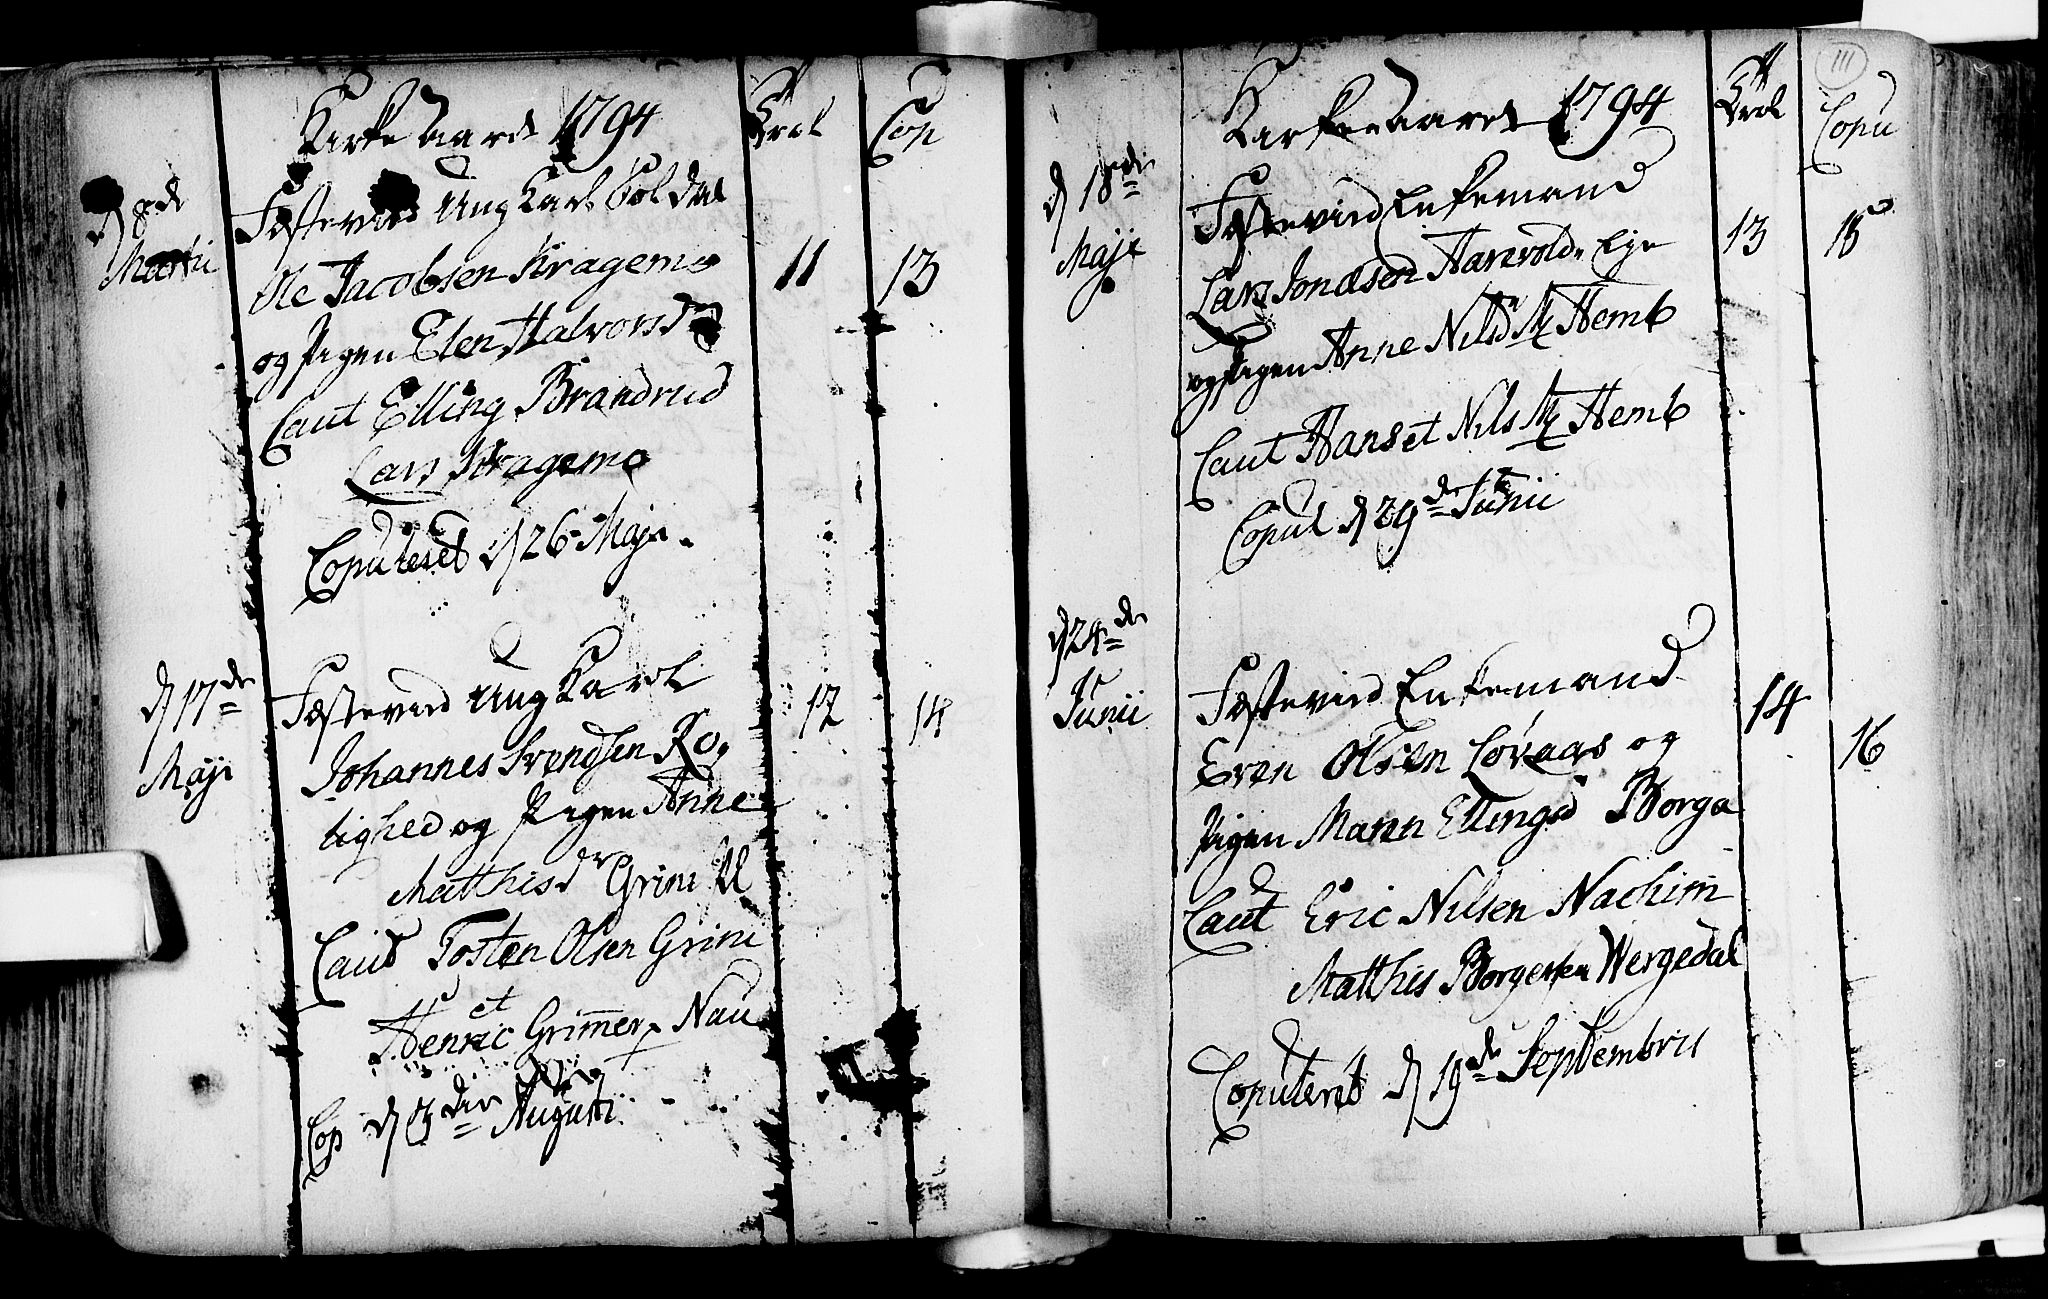 Kirke Aaret 1794 Trol Cop
d 8de Martii
Fæstevid Ung Karl Soldat
Ole Jacobsen Kragemo 11 13
og Pigen Elen Halvorsd
Caut Elling Brandrud
Lars Kragemo
Copuleret d 26 Maji.
d 17de Maji
Fæstevid Ung Karl
Johannes Svendsen Ro, 12 14
lighed og Pigen Anne
Matthisdr Grini
Caut Tosten Olsen Grini
et
Henric Grimmer Nau
Cop d 3die Augusti
111
Kirke Aaret 1794 Trol Copu
d 18de Maji
Fæstevid Enkemand
Lars Jonæsen Aarsvold, Eje 13 15
og Pigen Anne Nilsd Hemb
Caut Hans et Nils Hemb
Copul d 29de Junii
d 24de Junii
Fæstevid Enkemand 14
Even Olsen Løvaas og 16
Pigen Maren Ellingsd Borga
Caut Eric Nilsen Nachim
Matthis Borgersen Wergedal
Copulerit d 19de Septembris